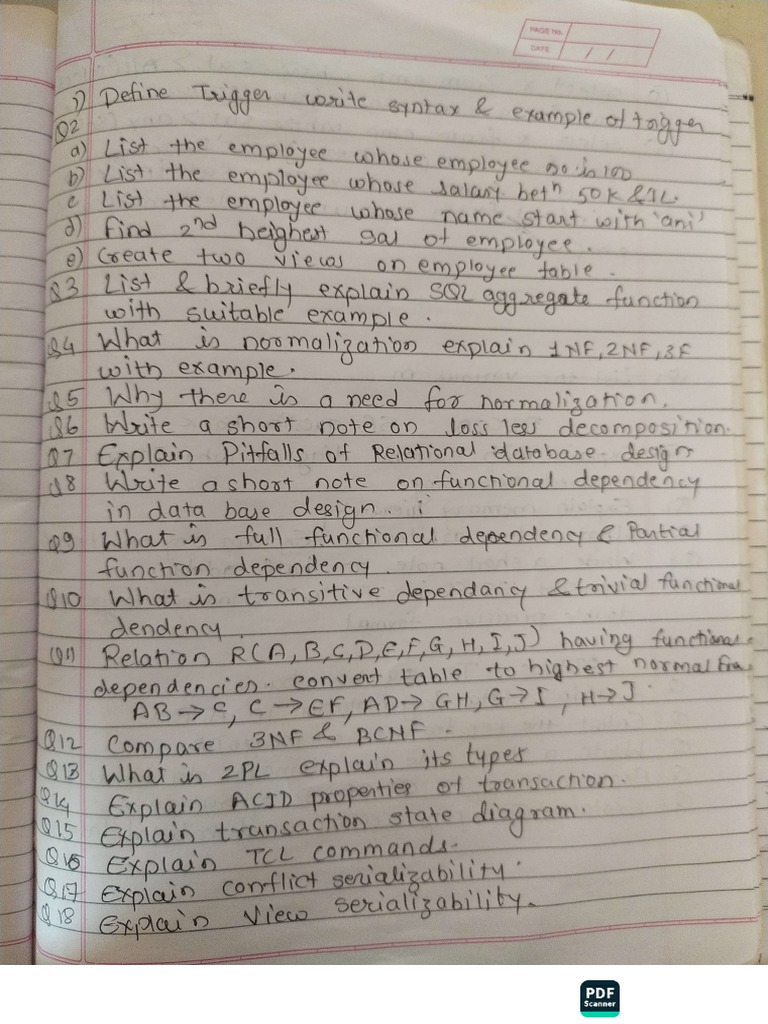 PAGE No.
DATE / /
i) Define Trigger write syntax & example of trigger
Q2
a) List the employee whose employee no is 100
b) List the employee whose salary betn 50K & 1L.
c List the employee whose name start with 'ani'
d) find 2nd heighest sal of employee.
e) Create two views on employee table.
Q3 List & briefly explain SQL aggregate function
with suitable example.
Q4 What is normalization explain 1NF, 2NF, 3F
with example.
Q5 Why there is a need for normalization.
Q6 Write a short note on loss less decomposition.
Q7 Explain Pitfalls of Relational database design
Q8 Write a short note on functional dependency
in data base design. i
Q9 What is full functional dependency & Partial
function dependency.
Q10 What is transitive dependancy & trivial functional
dendency.
Q11 Relation R(A,B,C,D,E,F,G,H,I,J) having functional
dependencies. convert table to highest normal
AB → C, C → EF, AD → GH, G → I, H → J.
Q12 Compare 3NF & BCNF.
Q13 What is 2PL explain its types
Q14 Explain ACID properties of transaction.
Q15 Explain transaction state diagram.
Q16 Explain TCL commands.
Q17 Explain conflict serializability.
Q18 Explain View serializability.
PDF
Scanner